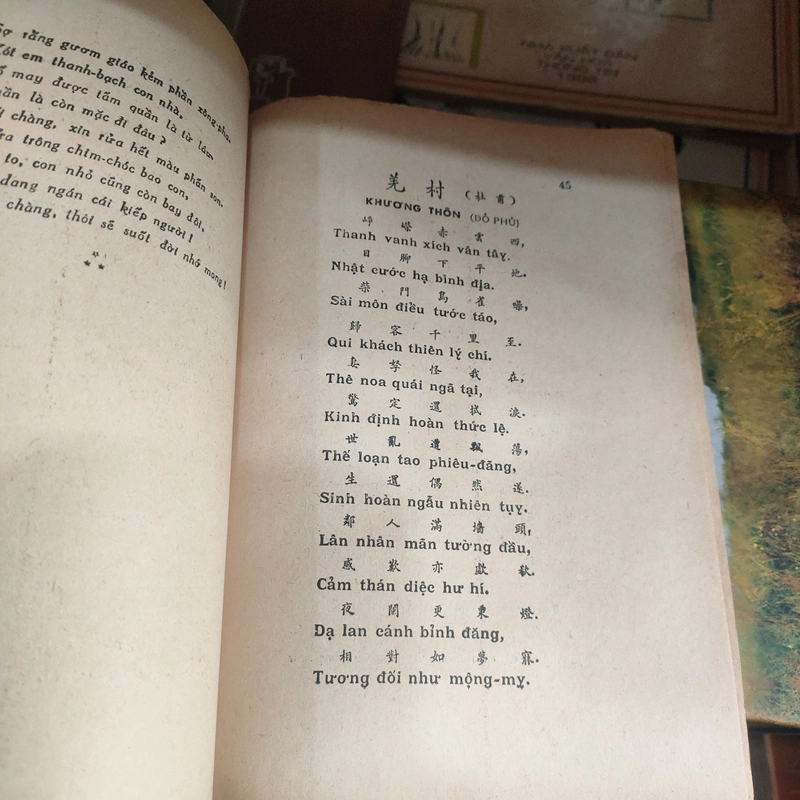 rằng gươm giáo kém phần xông-pha.
em thanh-bạch con nhà,
may được tấm quần là từ lâu
là còn mặc đi đâu ?
chàng, xin rửa hết màu phấn son.
trông chim-chóc bao con,
to, con nhỏ cũng còn bay đôi,
đang ngán cái kiếp người !
chàng, thôi sẽ suốt đời nhớ mong !
45
羌 村 (杜 甫)
KHƯƠNG THÔN (ĐỖ PHỦ)
崢 嶸 赤 雲 四,
Thanh vanh xích vân tây.
日 脚 下 平 地.
Nhật cước hạ bình địa.
柴 門 鳥 雀 噪,
Sài môn điều tước táo,
歸 客 千 里 至.
Qui khách thiên lý chí.
妻 孥 怪 我 在,
Thê noa quái ngã tại,
驚 定 還 拭 淚.
Kinh định hoàn thức lệ.
世 亂 遭 飄 蕩,
Thế loạn tao phiêu-đãng,
生 還 偶 然 遂.
Sinh hoàn ngẫu nhiên tụy.
鄰 人 滿 墻 頭,
Lân nhân mãn tường đầu,
感 歎 亦 歔 欷.
Cảm thán diệc hư hí.
夜 闌 更 秉 燈.
Dạ lan cánh bỉnh đăng,
相 對 如 夢 寐.
Tương đối như mộng-mỵ.